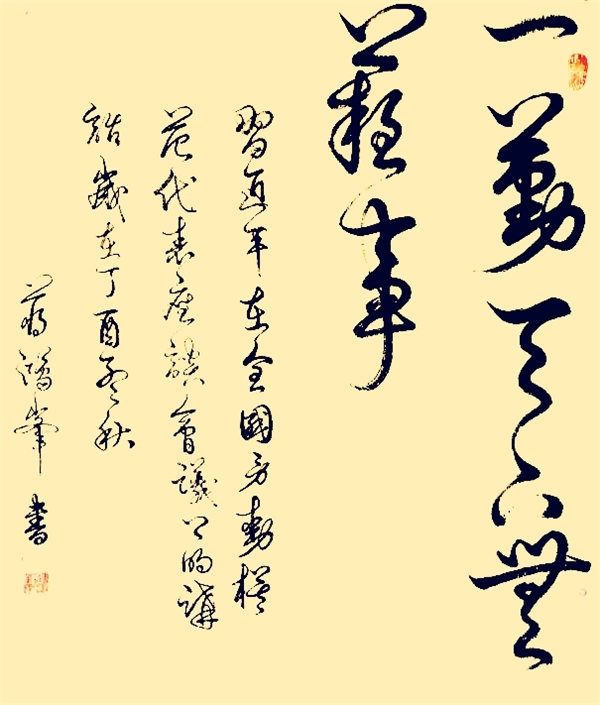 一勤天下無
難事
習近平在全國勞動模
范代表座談會議上的講
話歲在丁酉孟秋
峯書